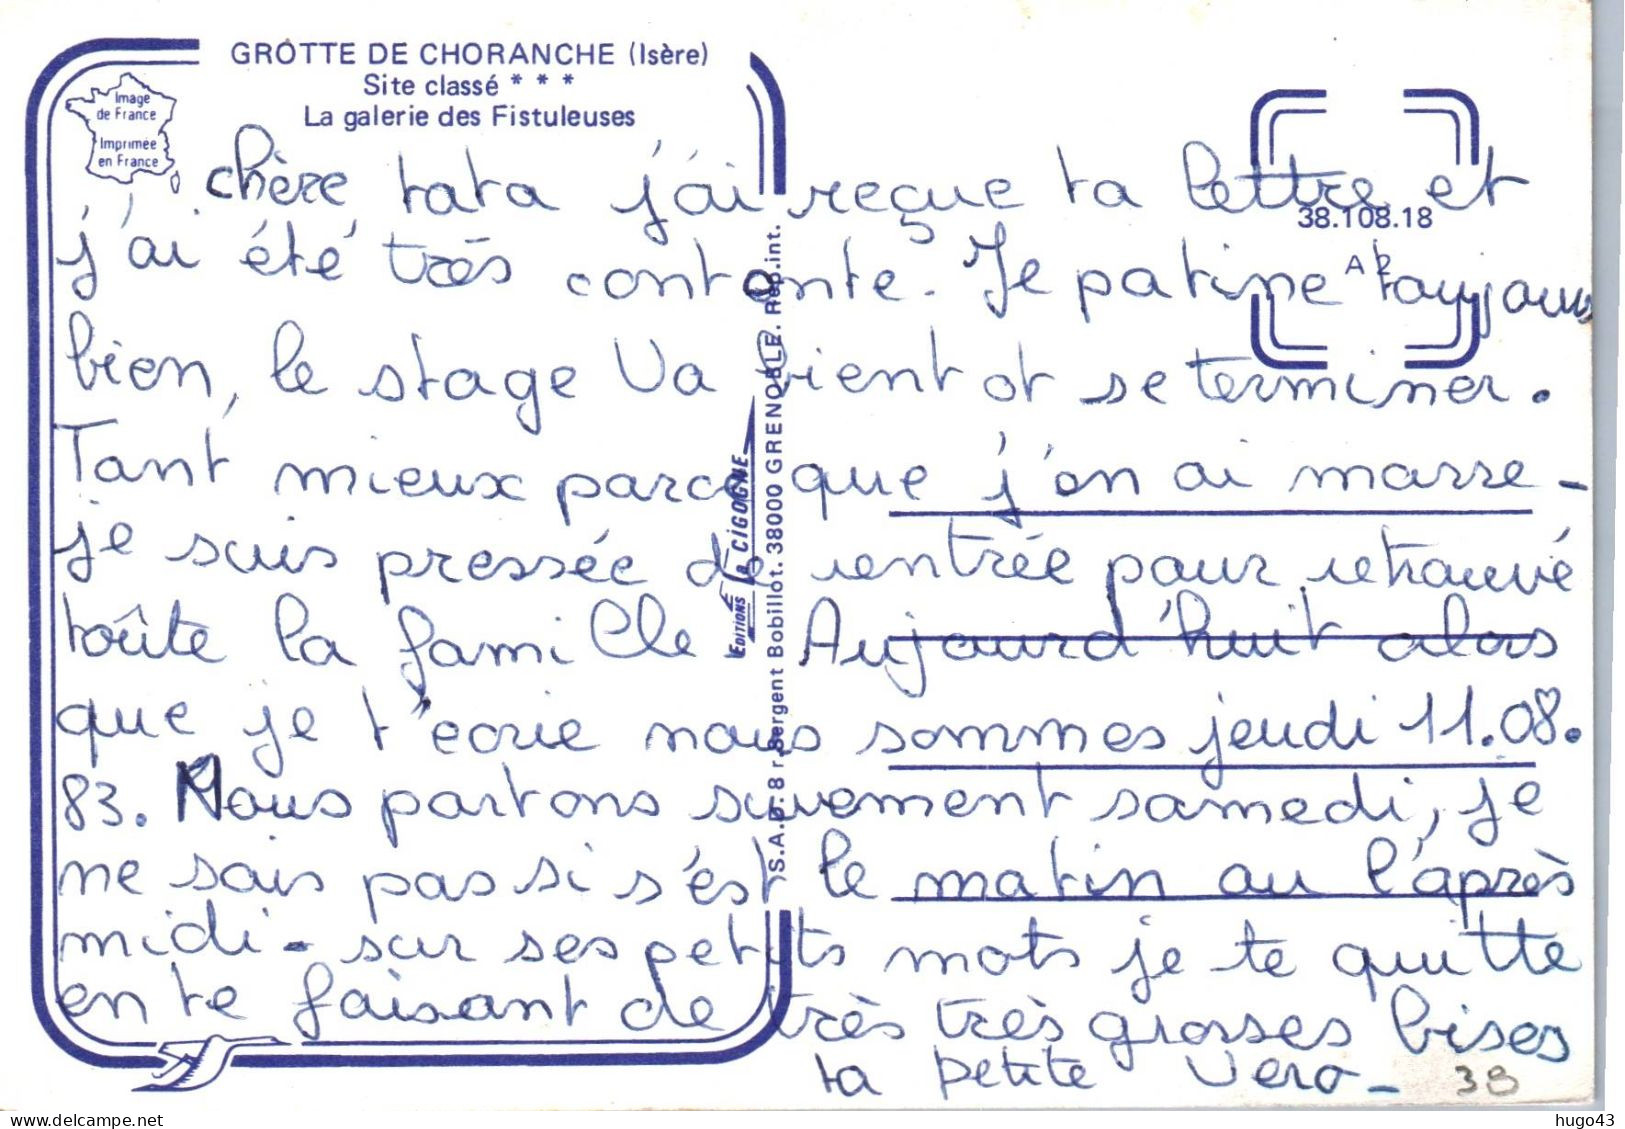 GROTTE DE CHORANCHE (Isère)
Site classé * * *
La galerie des Fistuleuses
Image
de France
Imprimée
en France
38.108.18
A 2
chère tata j'ai reçue ta lettre et
j'ai été très contente. Je patine toujours
bien, le stage Va bientot se terminer.
Tant mieux parce que j'en ai marre -
je suis pressée de rentrée pour retrouvé
toûte la famille. Aujourd'huit alors
que je t'ecrie nous sommes jeudi 11.08.
83. Nous partons suvement samedi, je
ne sais pas si s'est le matin au l'après
midi - sur ses petits mots je te quitte
en te faisant de très très grosses bises
ta petite Vero -
38
EDITIONS la CIGOGNE
S.A.D. 8 r. Sergent Bobillot. 38000 GRENOBLE. Rep.int.
delcampe.net
hugo43